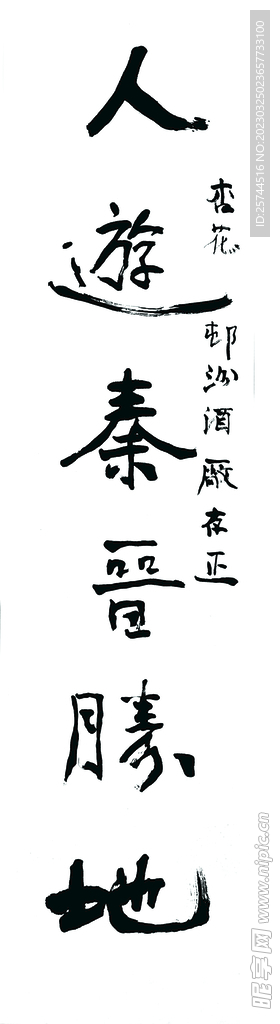 人遊秦晉勝地
杏花邨汾酒廠存正
ID:25744516 NO:20230325023657733100
昵享网 www.nipic.cn